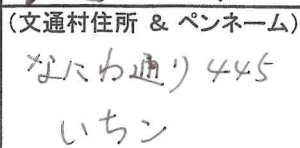 (文通村住所 & ペンネーム)
なにわ通り445
いちン